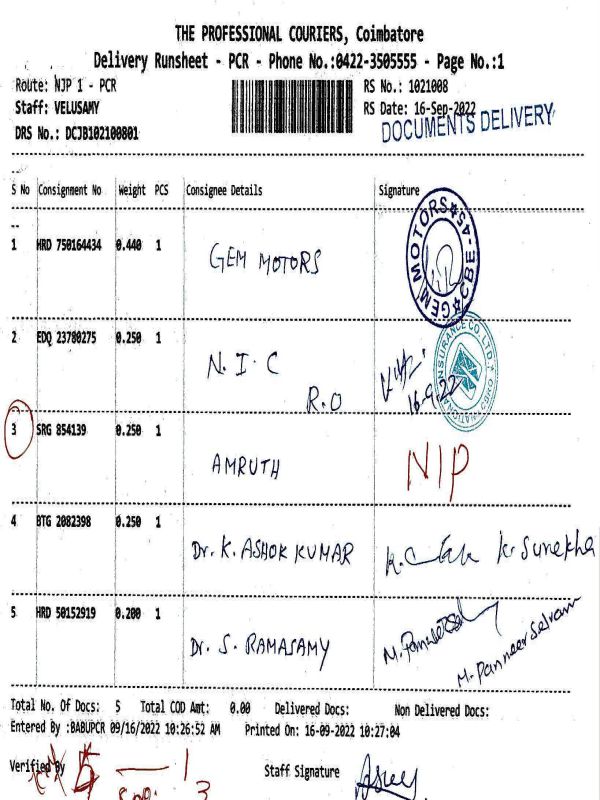 THE PROFESSIONAL COURIERS, Coimbatore
Delivery Runsheet - PCR - Phone No.:0422-3505555 - Page No.:1
Route: NJP 1 - PCR RS No.: 1021008
Staff: VELUSAMY RS Date: 16-Sep-2022
DRS No.: DCJB102100801 DOCUMENTS DELIVERY
S No Consignment No Weight PCS Consignee Details Signature
1 HRD 750164434 0.440 1 GEM MOTORS GEM MOTORS CBE-45
2 EDQ 23780275 0.250 1 N.I.C R.O 16.9.22 INSURANCE CO. LTD.
3 SRG 854139 0.250 1 AMRUTH NIP
4 BTG 2082398 0.250 1 Dr. K. ASHOK KUMAR K. Surekha
5 HRD 50152919 0.200 1 Dr. S. RAMASAMY M. Panneerselvam
Total No. Of Docs: 5 Total COD Amt: 0.00 Delivered Docs: Non Delivered Docs:
Entered By :BABUPCR 09/16/2022 10:26:52 AM Printed On: 16-09-2022 10:27:04
Verified By 5 1 Staff Signature
3